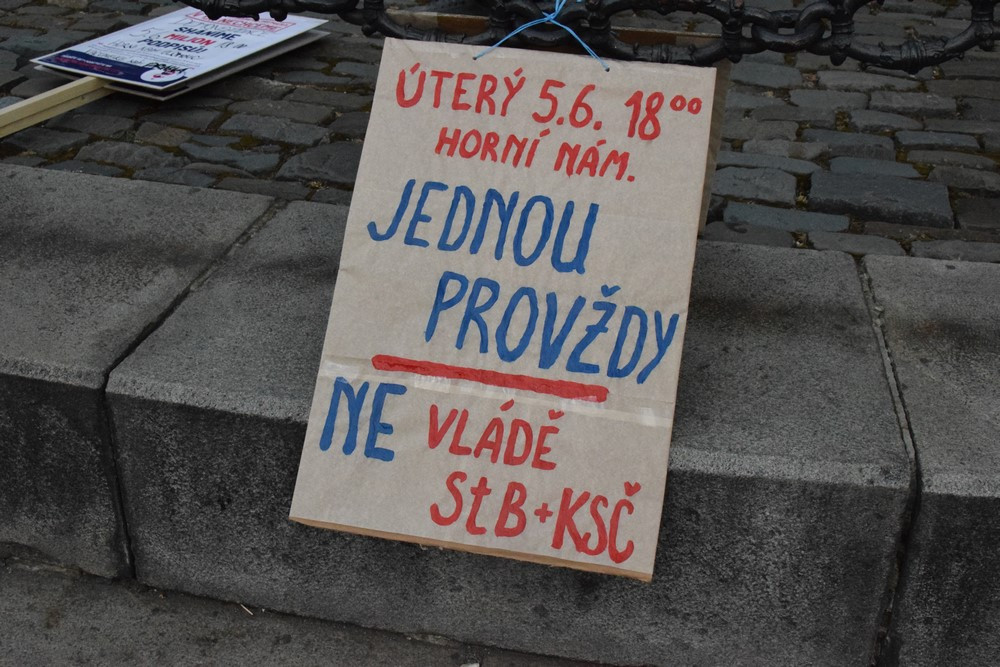 SHÁNÍME
MILION
PODPISŮ
ÚTERÝ 5.6. 18⁰⁰
HORNÍ NÁM.
JEDNOU
PROVŽDY
NE VLÁDĚ
StB+KSČ